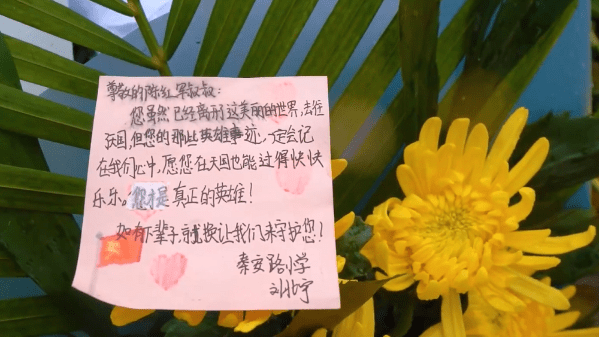 尊敬的陈红军叔叔:
您虽然已经离开这美丽的世界,去往
天国但您的那些英雄事迹,一定会记
在我们心中,愿您在天国也能过得快快
乐乐。您才是真正的英雄!
如有下辈子,就换让我们来守护您!
秦安路小学
刘